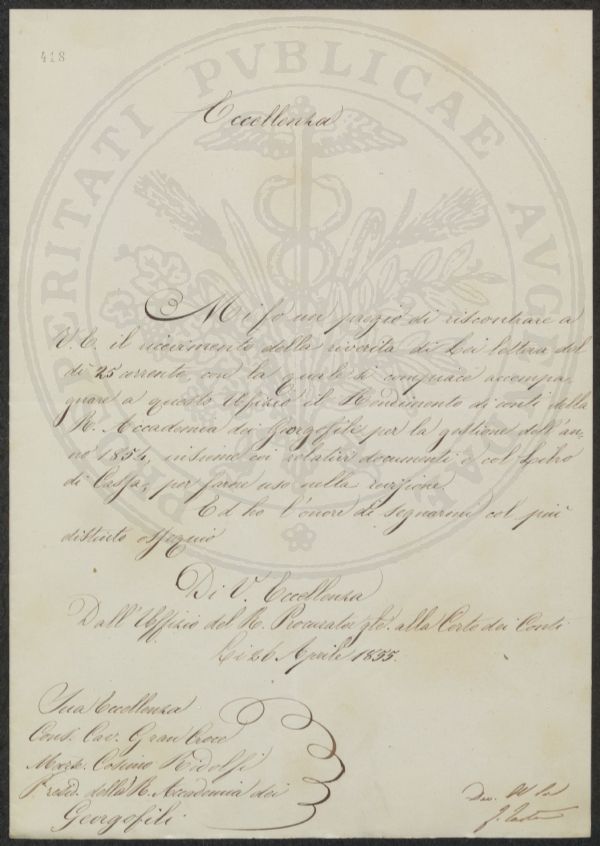 418
Eccellenza
PROSPERITATI PVBLICAE AVGENDAE
Mi fo un pregio di riscontrare a
V. E. il ricevimento della riverita di Lei lettera del
di 25 corrente, con la quale si compiace accompa-
gnare a questo Ufizio il Rendimento di conti della
R. Accademia dei Georgofili per la gestione dell'an-
no 1854, insieme coi relativi documenti e col Libro
di Cassa, per farne uso nella revisione.
Ed ho l'onore di segnarmi col più
distinto ossequio
Di V. Eccellenza
Dall'Uffizio del R. Procurator gle. alla Corte dei Conti
Li 26 Aprile 1855.
Sua Eccellenza
Cons. Cav. Gran Croce
March. Cosimo Ridolfi
Presid. della R. Accademia dei
Georgofili.